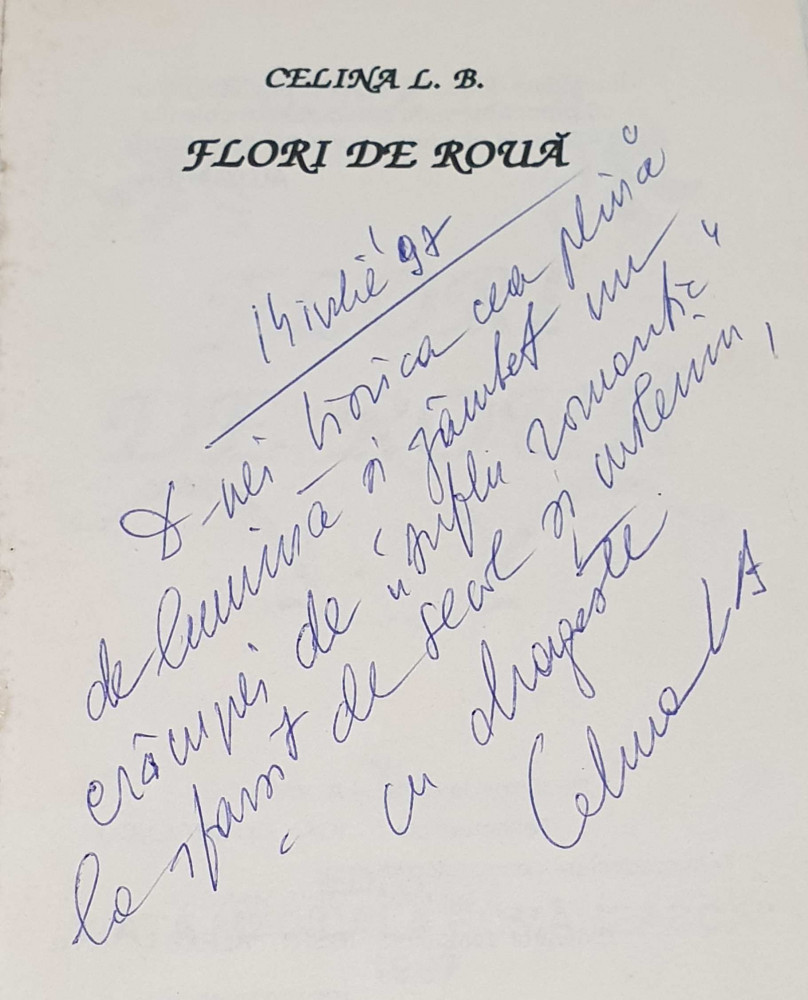 CELINA L. B.
FLORI DE ROUĂ
14 iulie '97
D-nei Viorica cea plină
de lumină și zâmbet un
crâmpei de "suflu romantic"
la sfârșit de secol și mileniu,
cu dragoste
Celina L B